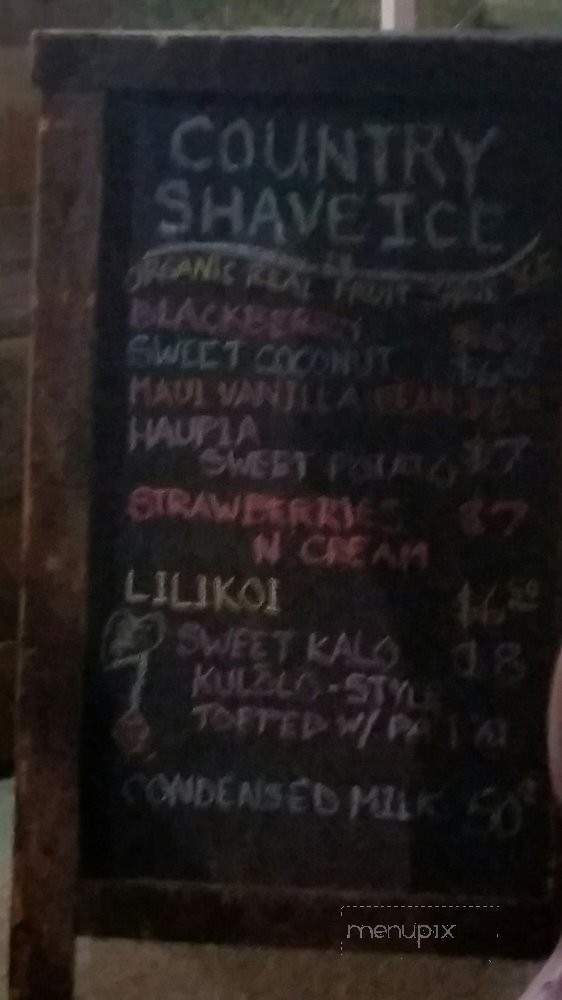 COUNTRY
SHAVE ICE
ORGANIC REAL FRUIT
BLACKBERRY
SWEET COCONUT
MAUI VANILLA BEAN
HAUPIA
SWEET POTATO $7
STRAWBERRIES $7
N CREAM
LILIKOI $6
SWEET KALO $8
KULOLO-STYLE
TOPPED W/
CONDENSED MILK 50¢
menupix